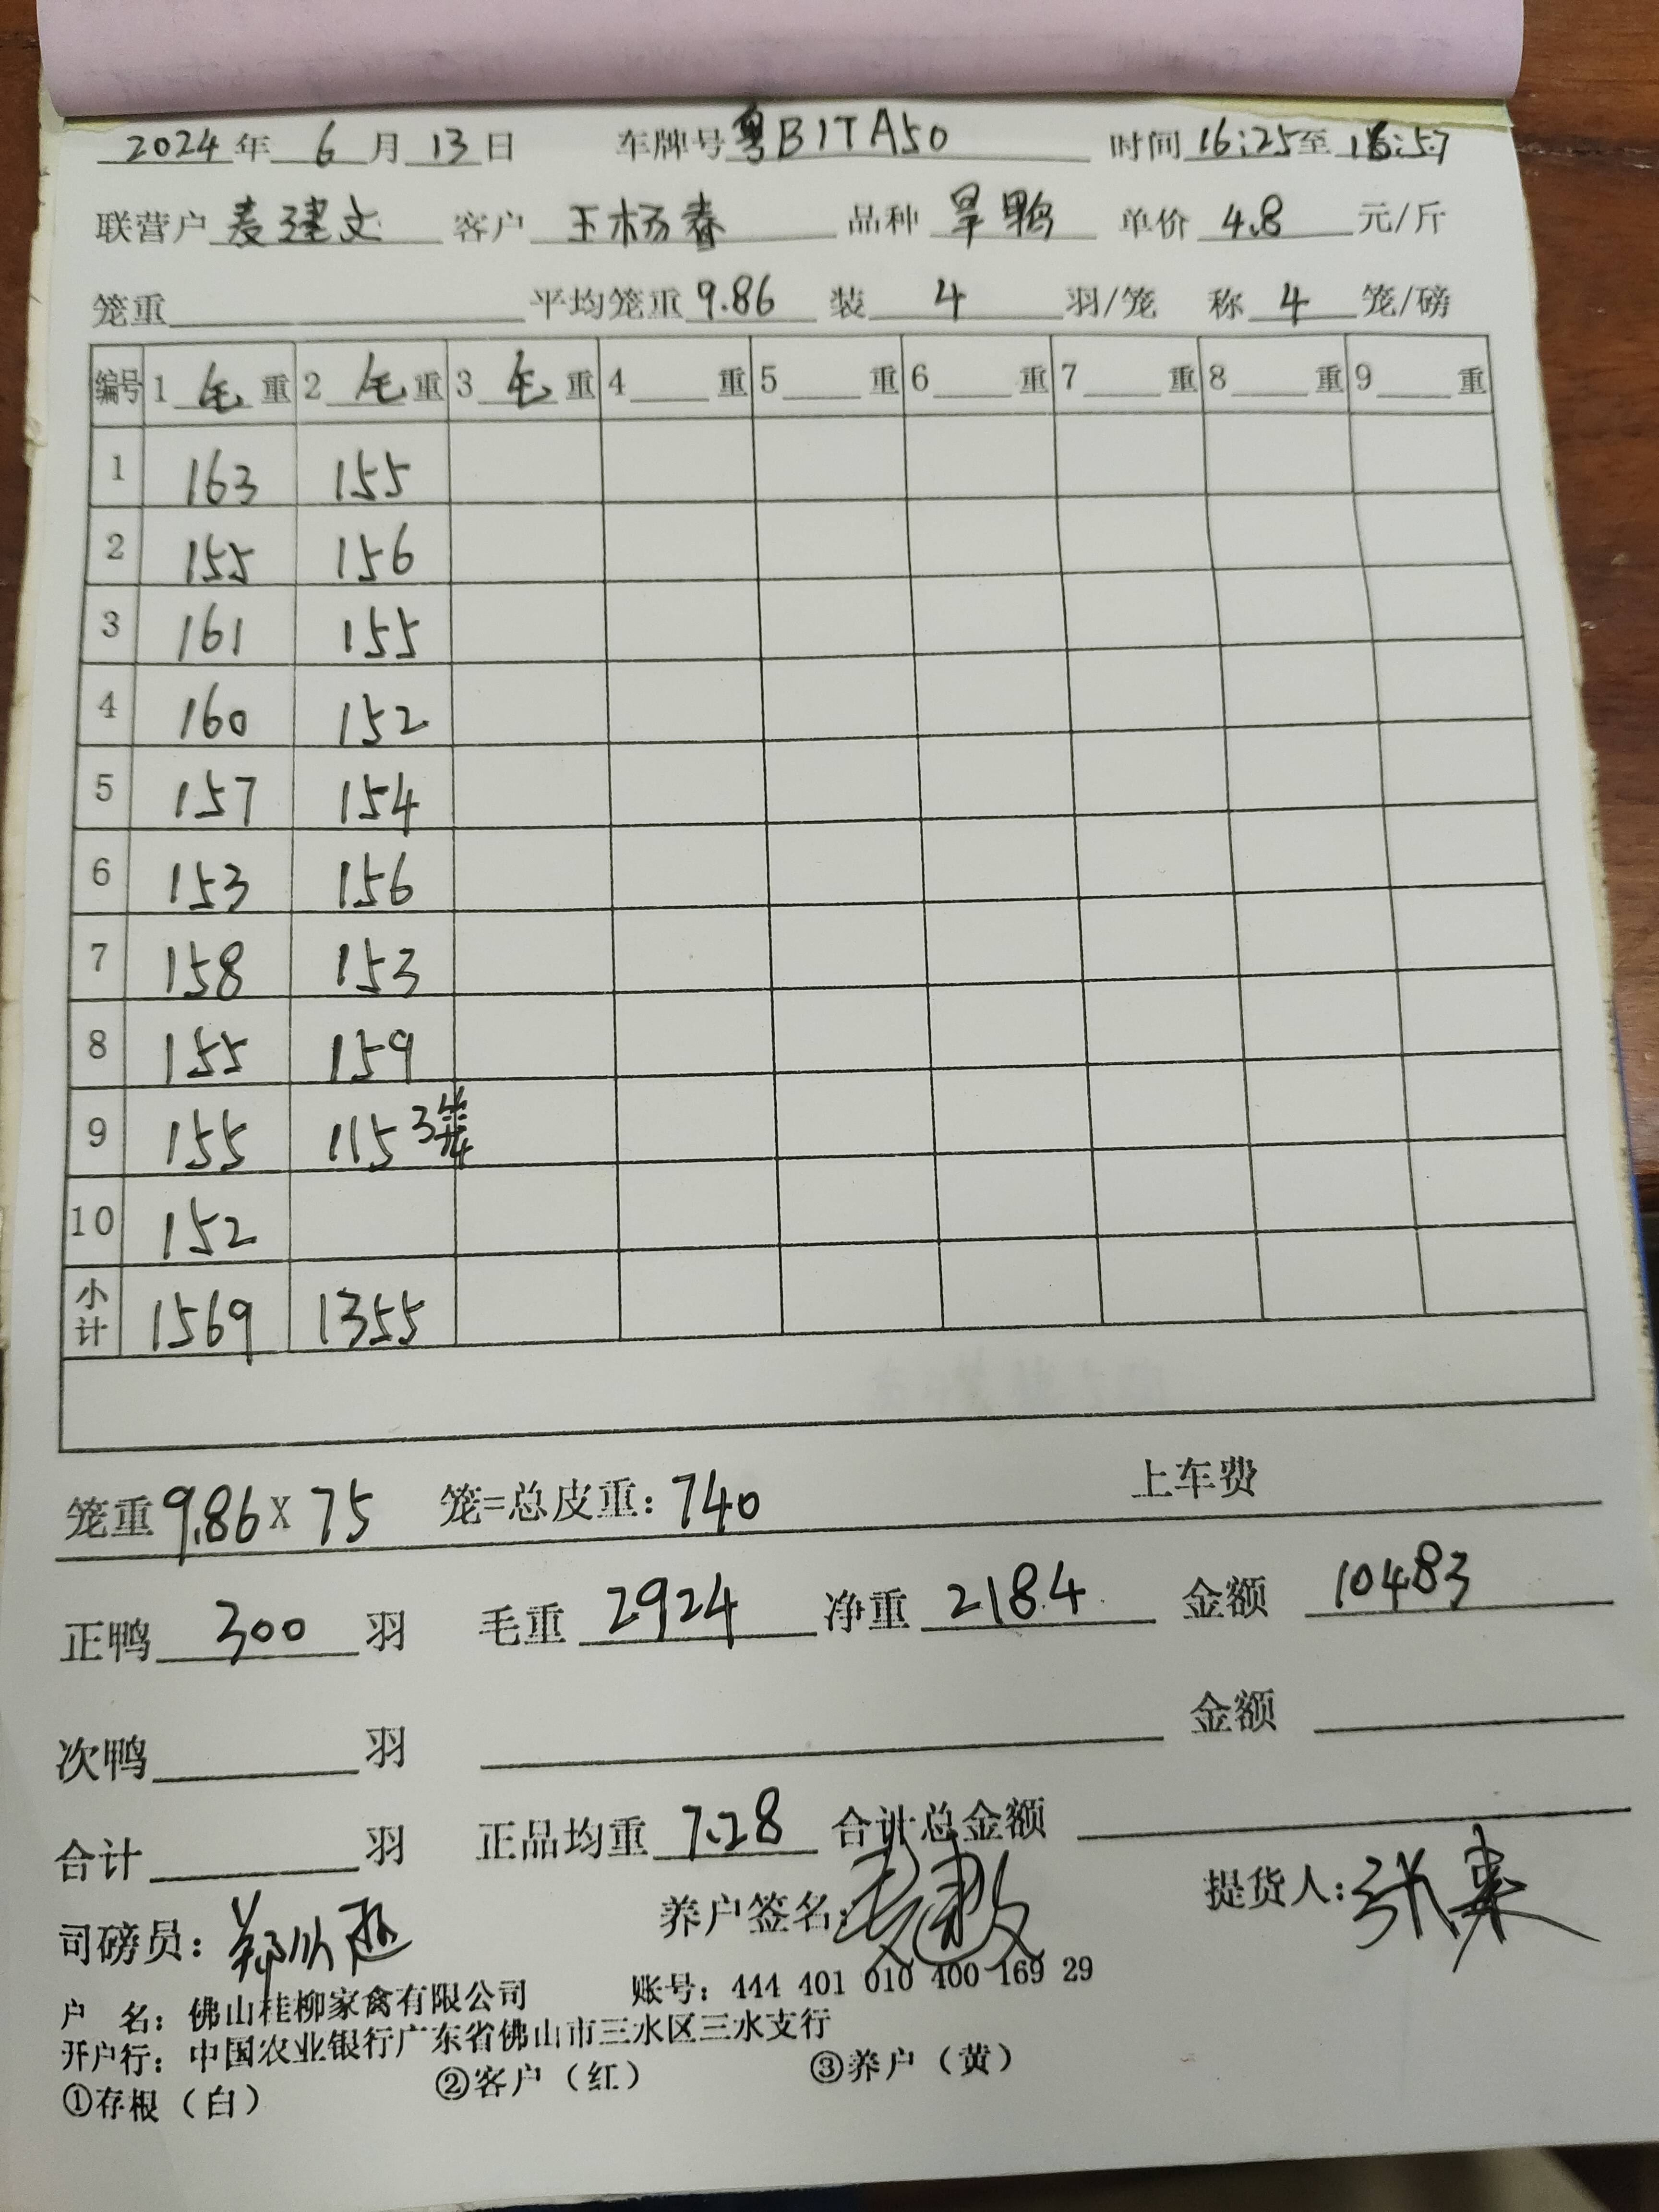 2024年 6月13日 车牌号粤B1TA50 时间16:25至16:57
联营户麦建文 客户 王杨春 品种 旱鸭 单价 4.8 元/斤
笼重 平均笼重9.86 装 4 羽/笼 称 4 笼/磅
编号 1毛重 2毛重 3毛重 4 重 5 重 6 重 7 重 8 重 9 重
1 163 155
2 155 156
3 161 155
4 160 152
5 157 154
6 153 156
7 158 153
8 155 159
9 155 115 3笼
10 152
小计 1569 1355
笼重9.86×75 笼=总皮重:740 上车费
正鸭 300 羽 毛重 2924 净重 2184 金额 10483
次鸭 羽 金额
合计 羽 正品均重 7.28 合计总金额
司磅员: 养户签名: 提货人:
户 名:佛山桂柳家禽有限公司 账号:444 401 010 400 169 29
开户行:中国农业银行广东省佛山市三水区三水支行
①存根(白) ②客户(红) ③养户(黄)